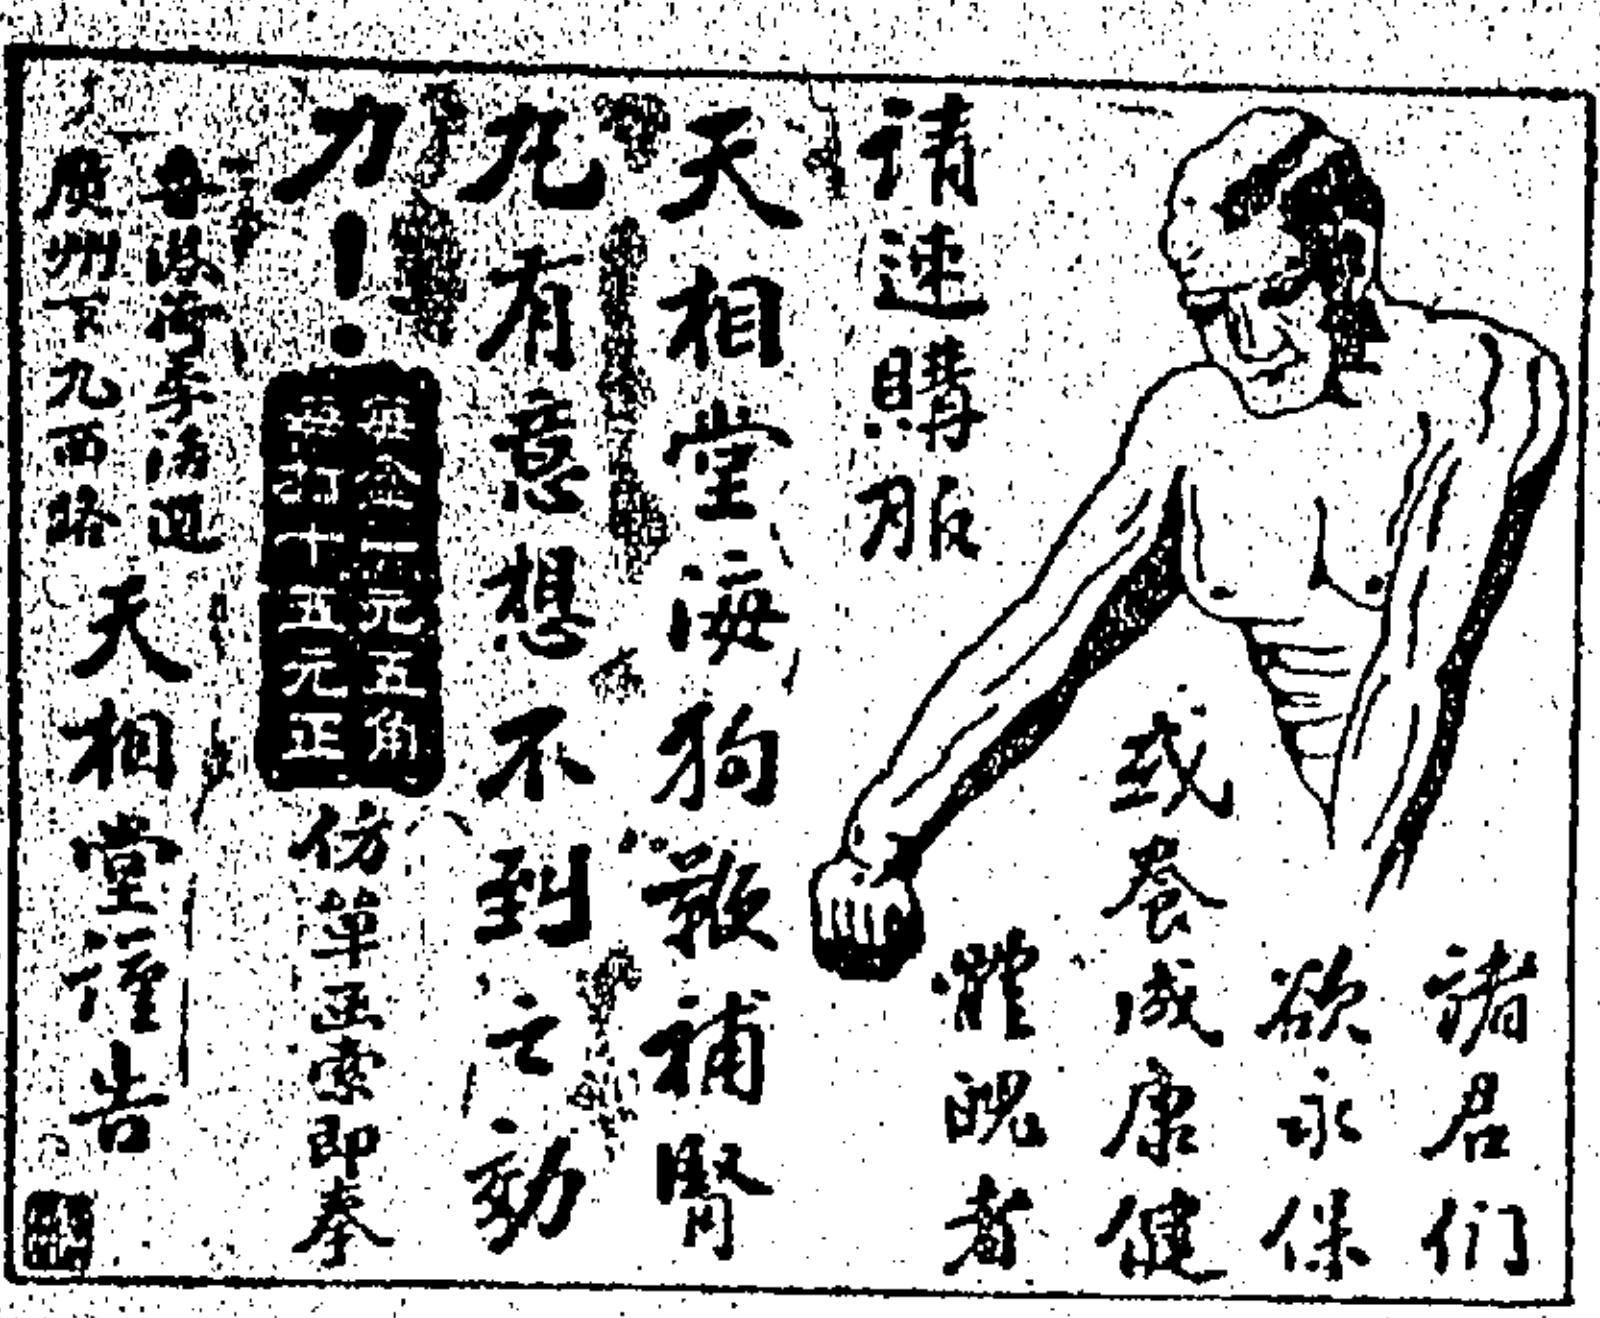 諸君们
欲永保
或养成康健
體魄者
请速購服
天相堂海狗鞭補腎
丸有意想不到之効
力！
每盒一元五角
每打十五元正
仿單函索即奉
香港荷李活道
廣州下九西路
天相堂謹告